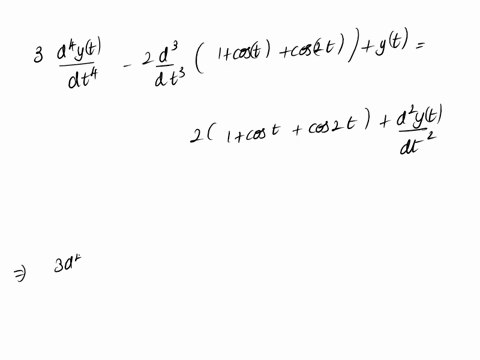 3 d⁴y(t)/dt⁴ - 2 d³/dt³ ( 1+cos(t) + cos(2t) ) + y(t) =
2( 1+cost + cos2t ) + d²y(t)/dt²
⇒ 3d⁴